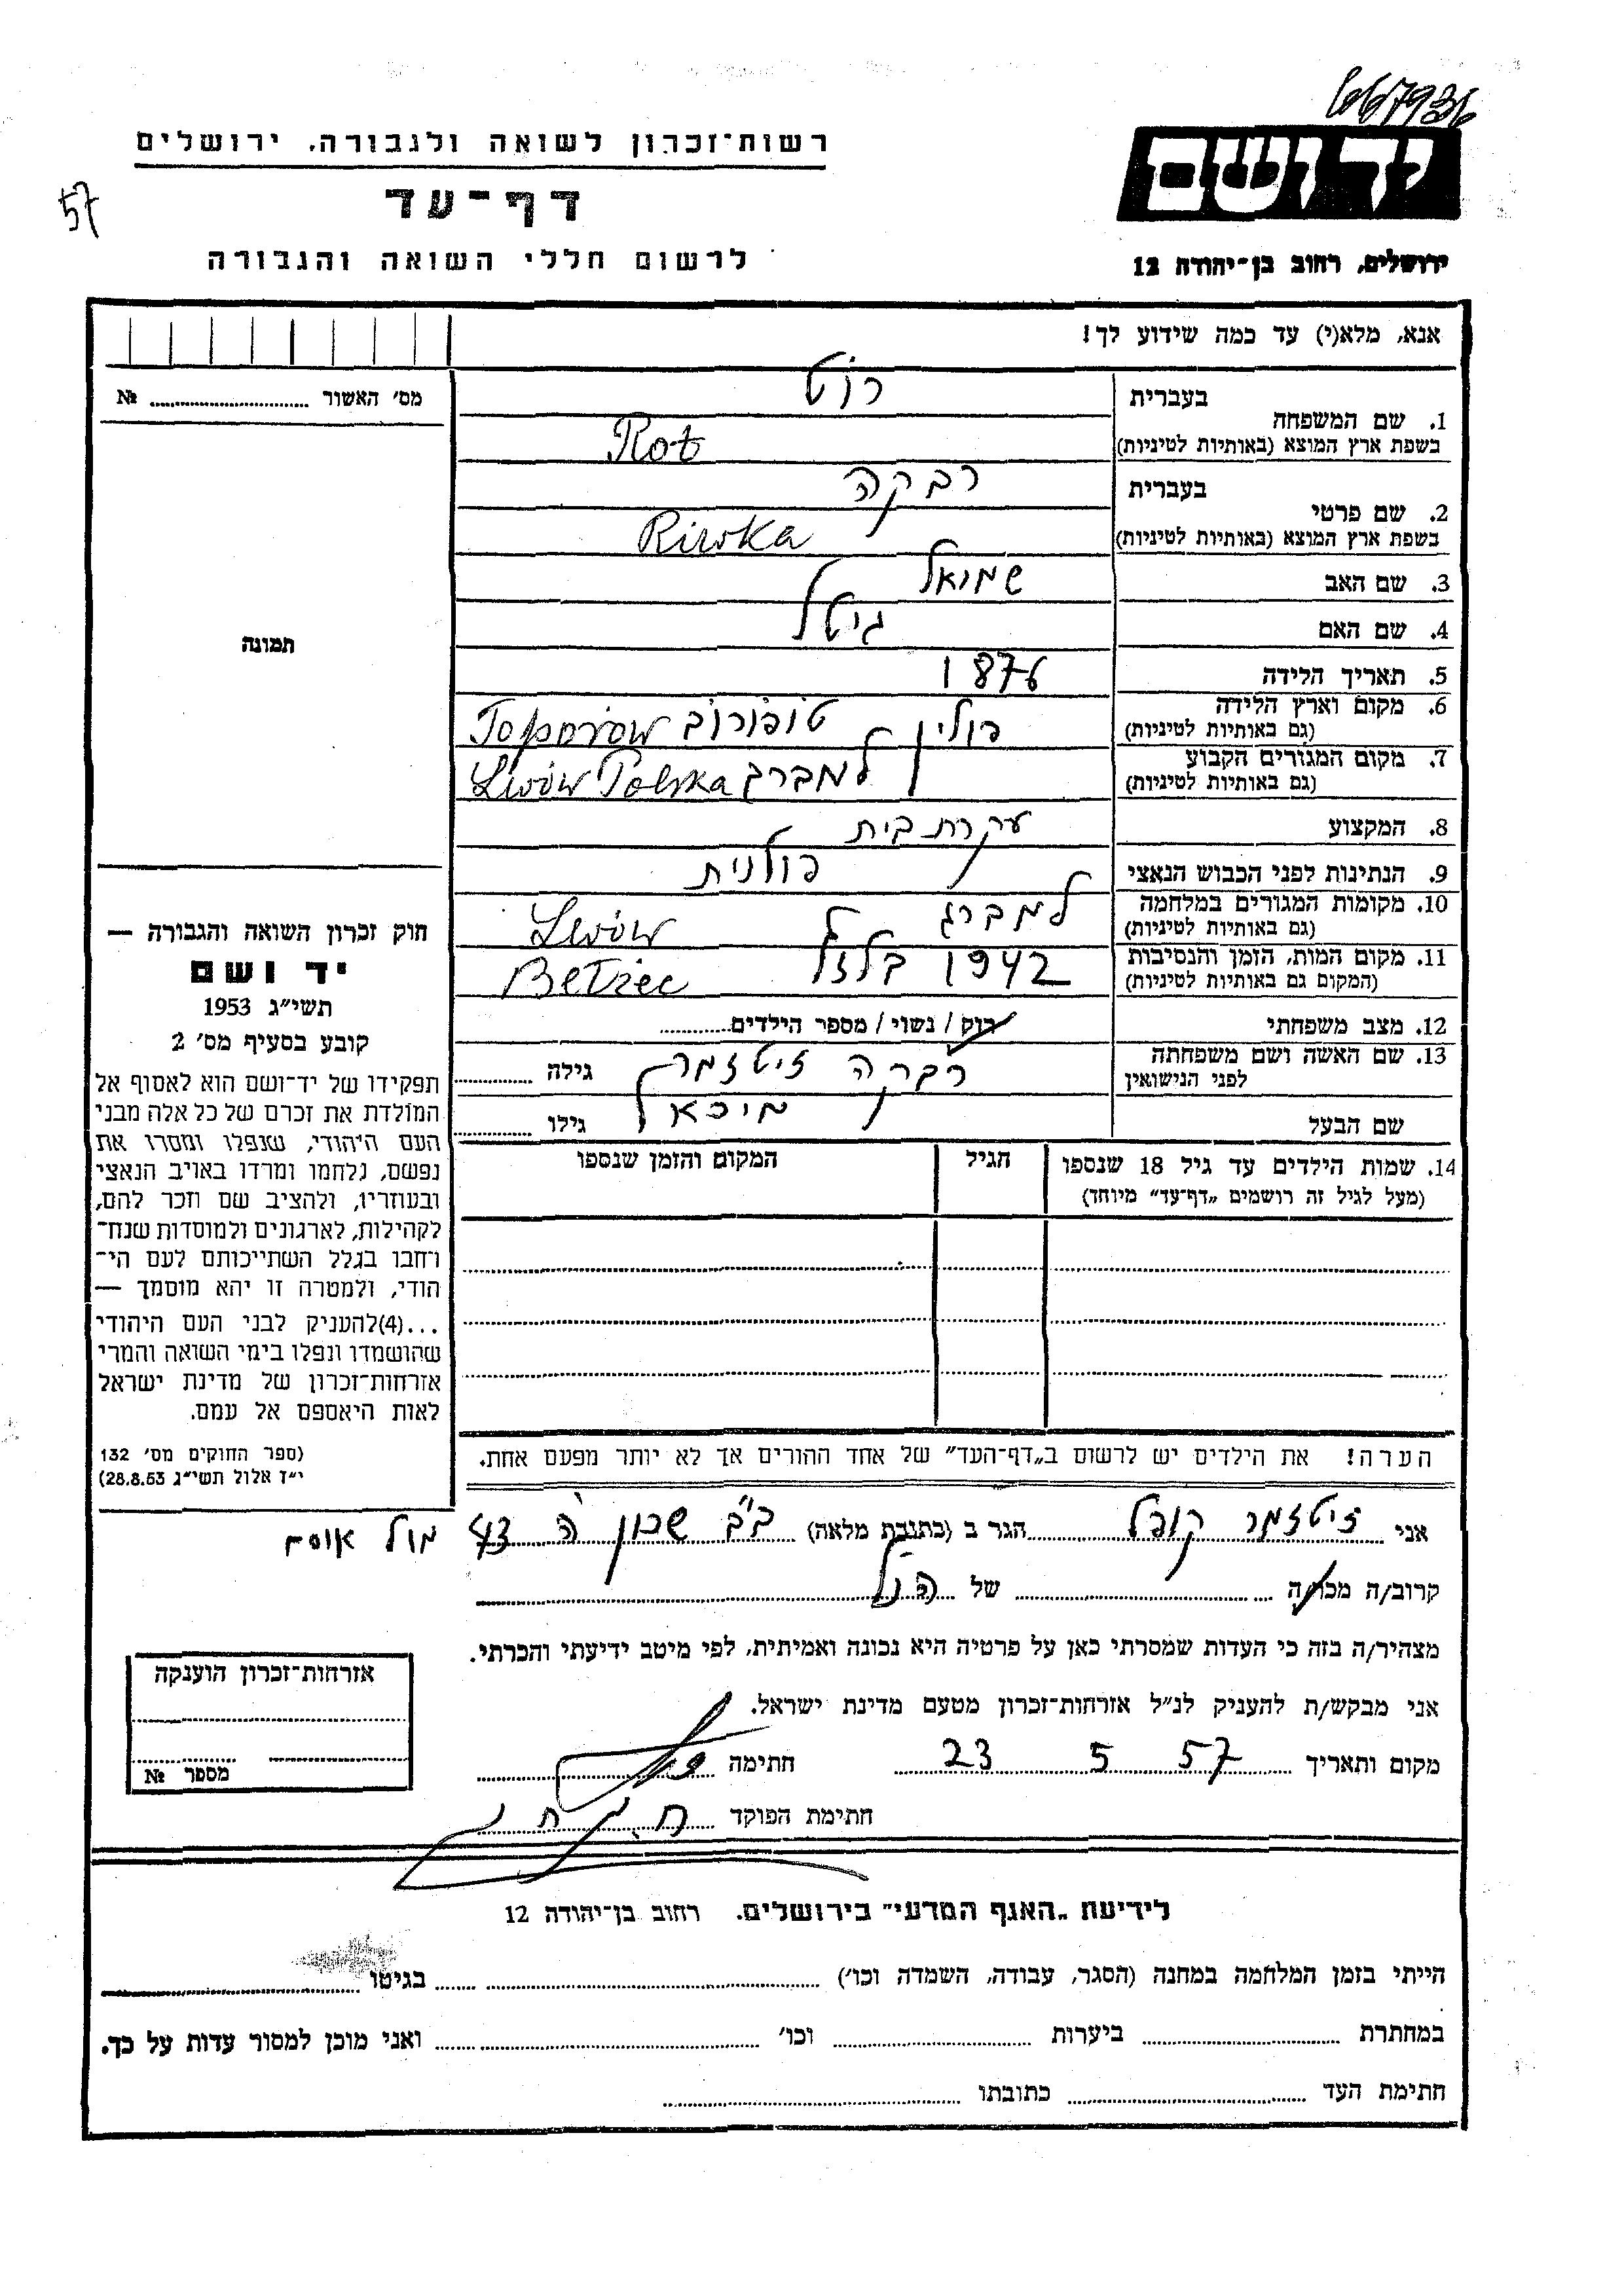 667936
רשות־זכרון לשואה ולגבורה, ירושלים
יד ושם
57
דף־עד
לרשום חללי השואה והגבורה
ירושלים, רחוב בן־יהודה 12
אנא, מלא(י) עד כמה שידוע לך!
מס' האשור № ............
1. שם המשפחה
בעברית רוט
בשפת ארץ המוצא (באותיות לטיניות) Rot
2. שם פרטי
בעברית רבקה
בשפת ארץ המוצא (באותיות לטיניות) Riwka
3. שם האב שמואל
4. שם האם גיטל
5. תאריך הלידה 1876
6. מקום וארץ הלידה
(גם באותיות לטיניות) פולין טופורוב Toporów
7. מקום המגורים הקבוע
(גם באותיות לטיניות) למברג Lwów Polska
8. המקצוע עקרת בית
9. הנתינות לפני הכבוש הנאצי פולנית
10. מקומות המגורים במלחמה
(גם באותיות לטיניות) למברג Lwów
11. מקום המות, הזמן והנסיבות
(המקום גם באותיות לטיניות) 1942 Bełżec
12. מצב משפחתי רוק / נשוי / מספר הילדים............
13. שם האשה ושם משפחתה
לפני הנישואין רבקה זיטזמר גילה ............
שם הבעל מיכאל גילו ............
תמונה
חוק זכרון השואה והגבורה —
יד ושם
תשי״ג 1953
קובע בסעיף מס' 2
תפקידו של יד־ושם הוא לאסוף אל
המולדת את זכרם של כל אלה מבני
העם היהודי, שנפלו ומסרו את
נפשם, נלחמו ומרדו באויב הנאצי
ובעוזריו, ולהציב שם וזכר להם,
לקהילות, לארגונים ולמוסדות שנח־
רחבו בגלל השתייכותם לעם הי־
הודי, ולמטרה זו יהא מוסמך —
...(4)להעניק לבני העם היהודי
שהושמדו ונפלו בימי השואה והמרי
אזרחות־זכרון של מדינת ישראל
לאות היאספם אל עמם.
(ספר החוקים מס' 132
י״ז אלול תשי״ג 28.8.53)
14. שמות הילדים עד גיל 18 שנספו
(מעל לגיל זה רושמים „דף־עד״ מיוחד)
הגיל
המקום והזמן שנספו
הערה! את הילדים יש לרשום ב„דף־העד״ של אחד ההורים אך לא יותר מפעם אחת.
אני זיטזמר קופל הגר ב (כתובת מלאה) ב״ב שכון ה 43 מול אוסם
קרוב/ה מכר/ה ............ של הנ״ל
מצהיר/ה בזה כי העדות שמסרתי כאן על פרטיה היא נכונה ואמיתית, לפי מיטב ידיעתי והכרתי.
אני מבקש/ת להעניק לנ״ל אזרחות־זכרון מטעם מדינת ישראל.
מקום ותאריך 23 5 57 חתימה
חתימת הפוקד
אזרחות־זכרון הוענקה
מספר №
לידיעת „האגף המדעי״ בירושלים, רחוב בן־יהודה 12
הייתי בזמן המלחמה במחנה (הסגר, עבודה, השמדה וכו') ............ בגיטו ............
במחתרת ............ ביערות ............ וכו' ............ ואני מוכן למסור עדות על כך.
חתימת העד ............ כתובתו ............